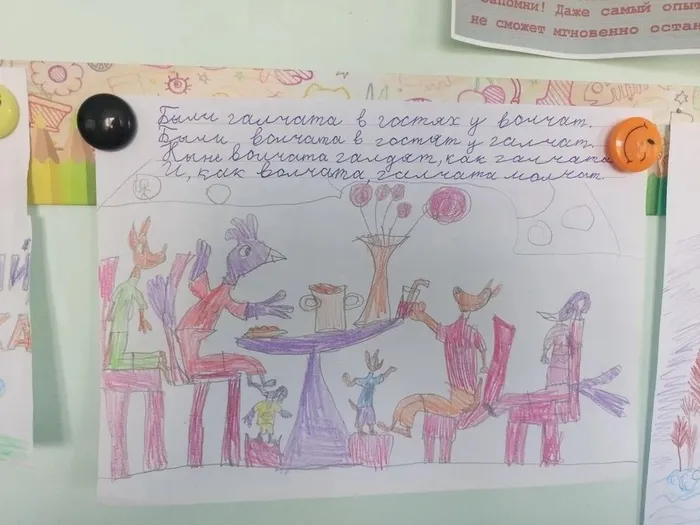 Запомни! Даже самый опыт
не сможет мгновенно остан
Были галчата в гостях у волчат.
Были волчата в гостях у галчат.
Ныне волчата галдят, как галчата
И, как волчата, галчата молчат
ИЙ
КА